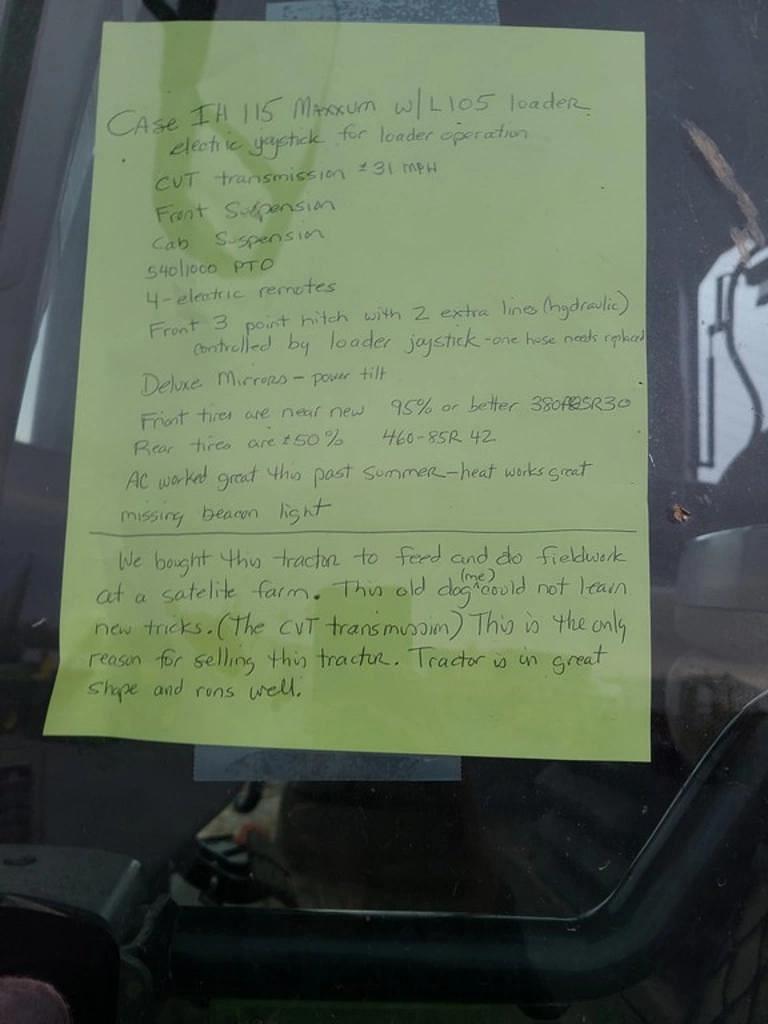 Case IH 115 Maxxum w/L105 loader
electric joystick for loader operation
CVT transmission ± 31 mph
Front Suspension
Cab Suspension
540/1000 PTO
4-electric remotes
Front 3 point hitch with 2 extra lines (hydraulic)
controlled by loader joystick - one hose needs replaced
Deluxe Mirrors - power tilt
Front tires are near new 95% or better 380/85R30
Rear tires are ±50% 460-85R 42
AC worked great this past summer - heat works great
missing beacon light
We bought this tractor to feed and do fieldwork
at a satelite farm. This old dog (me) could not learn
new tricks. (The CVT transmission) This is the only
reason for selling this tractor. Tractor is in great
shape and runs well.